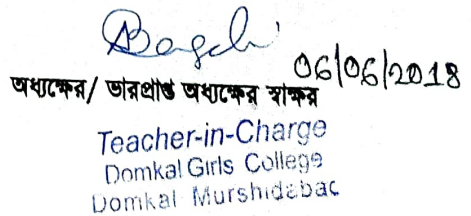 ABagchi
06/06/2018
অধ্যক্ষের/ ভারপ্রাপ্ত অধ্যক্ষের স্বাক্ষর
Teacher-in-Charge
Domkal Girls College
Domkal Murshidabad